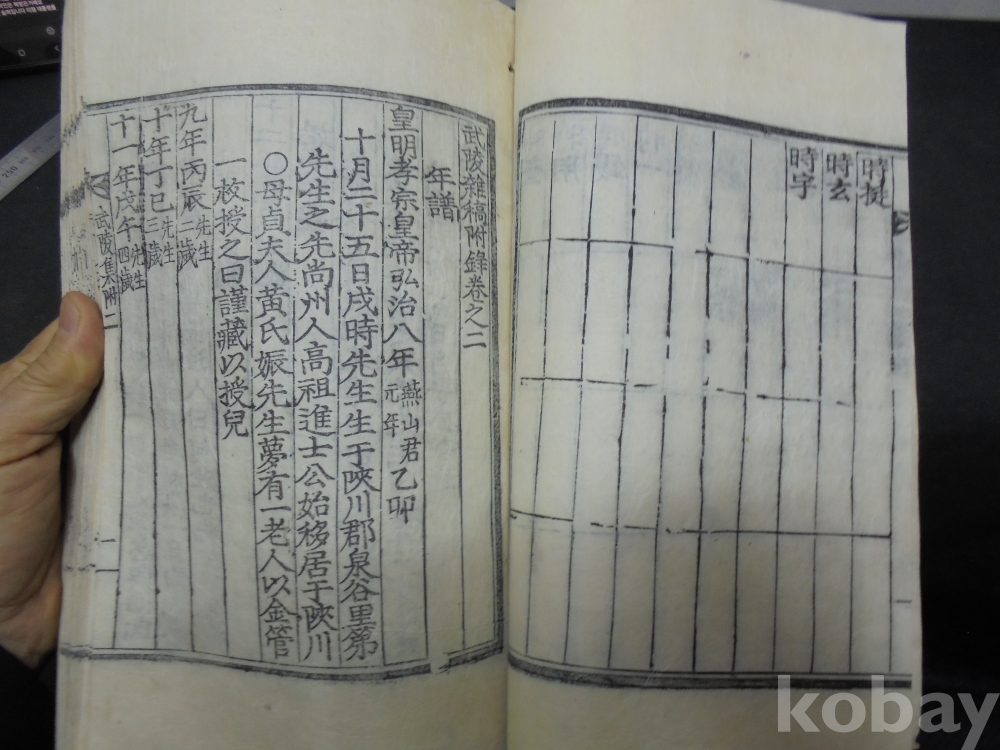 時挺
時玄
時字
武陵雜稿附錄卷之二
年譜
皇明孝宗皇帝弘治八年燕山君元年乙卯
十月二十五日戌時先生生于陜川郡泉谷里第
先生之先尚州人高祖進士公始移居于陜川
○母貞夫人黃氏娠先生夢有一老人以金管
一枚授之曰謹藏以授兒
九年丙辰先生二歲
十年丁巳先生三歲
十一年戊午先生四歲
武陵集附二
一
kobay